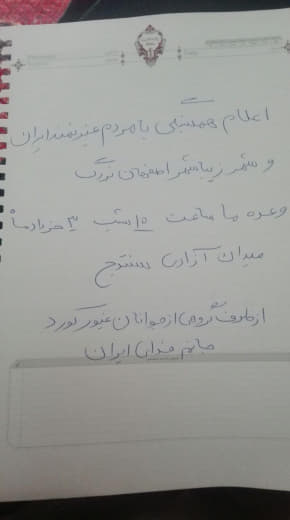 اعلام همبستگی با مردم غیرتمند ایران
و شهر زیبا شهر اصفهان بزرگ
وعده ما ساعت ۱۰ شب ۳ خرداد ماه
میدان آزادی سنندج
از طرف گروهی از جوانان غیور کورد
جانم فدای ایران